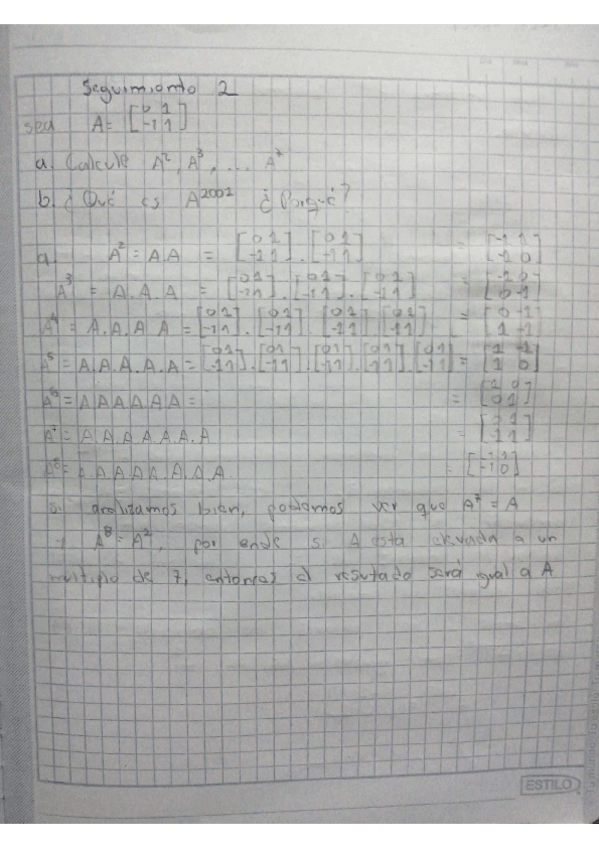 Seguimiento 2
sea A= [0 1
-1 1]
a. Calcule A², A³, .... A⁷
b. ¿Qué es A²⁰⁰² ¿Porqué?
a. A² = A.A = [0 1 -1 1] . [0 1 -1 1] = [-1 1 -1 0]
A³ = A.A.A = [0 1 -1 1] . [0 1 -1 1] . [0 1 -1 1] = [-1 0 0 -1]
A⁴ = A.A.A A = [0 1 -1 1] . [0 1 -1 1] [0 1 -1 1] [0 1 -1 1] = [0 -1 1 -1]
A⁵ = A.A.A.A.A = [0 1 -1 1] . [0 1 -1 1] . [0 1 -1 1] . [0 1 -1 1] . [0 1 -1 1] = [1 -1 1 0]
A⁶ = A A A A A A = = [1 0 0 1]
A⁷ = A.A A A A A.A = 
A⁸ = A.A A A A A.A.A = [-1 1 -1 0]
Si analizamos bien, podemos ver que A⁷ = A
y A⁸ = A², por ende si A esta elevada a un
multiplo de 7, entonces el resultado sera igual a A
ESTILO